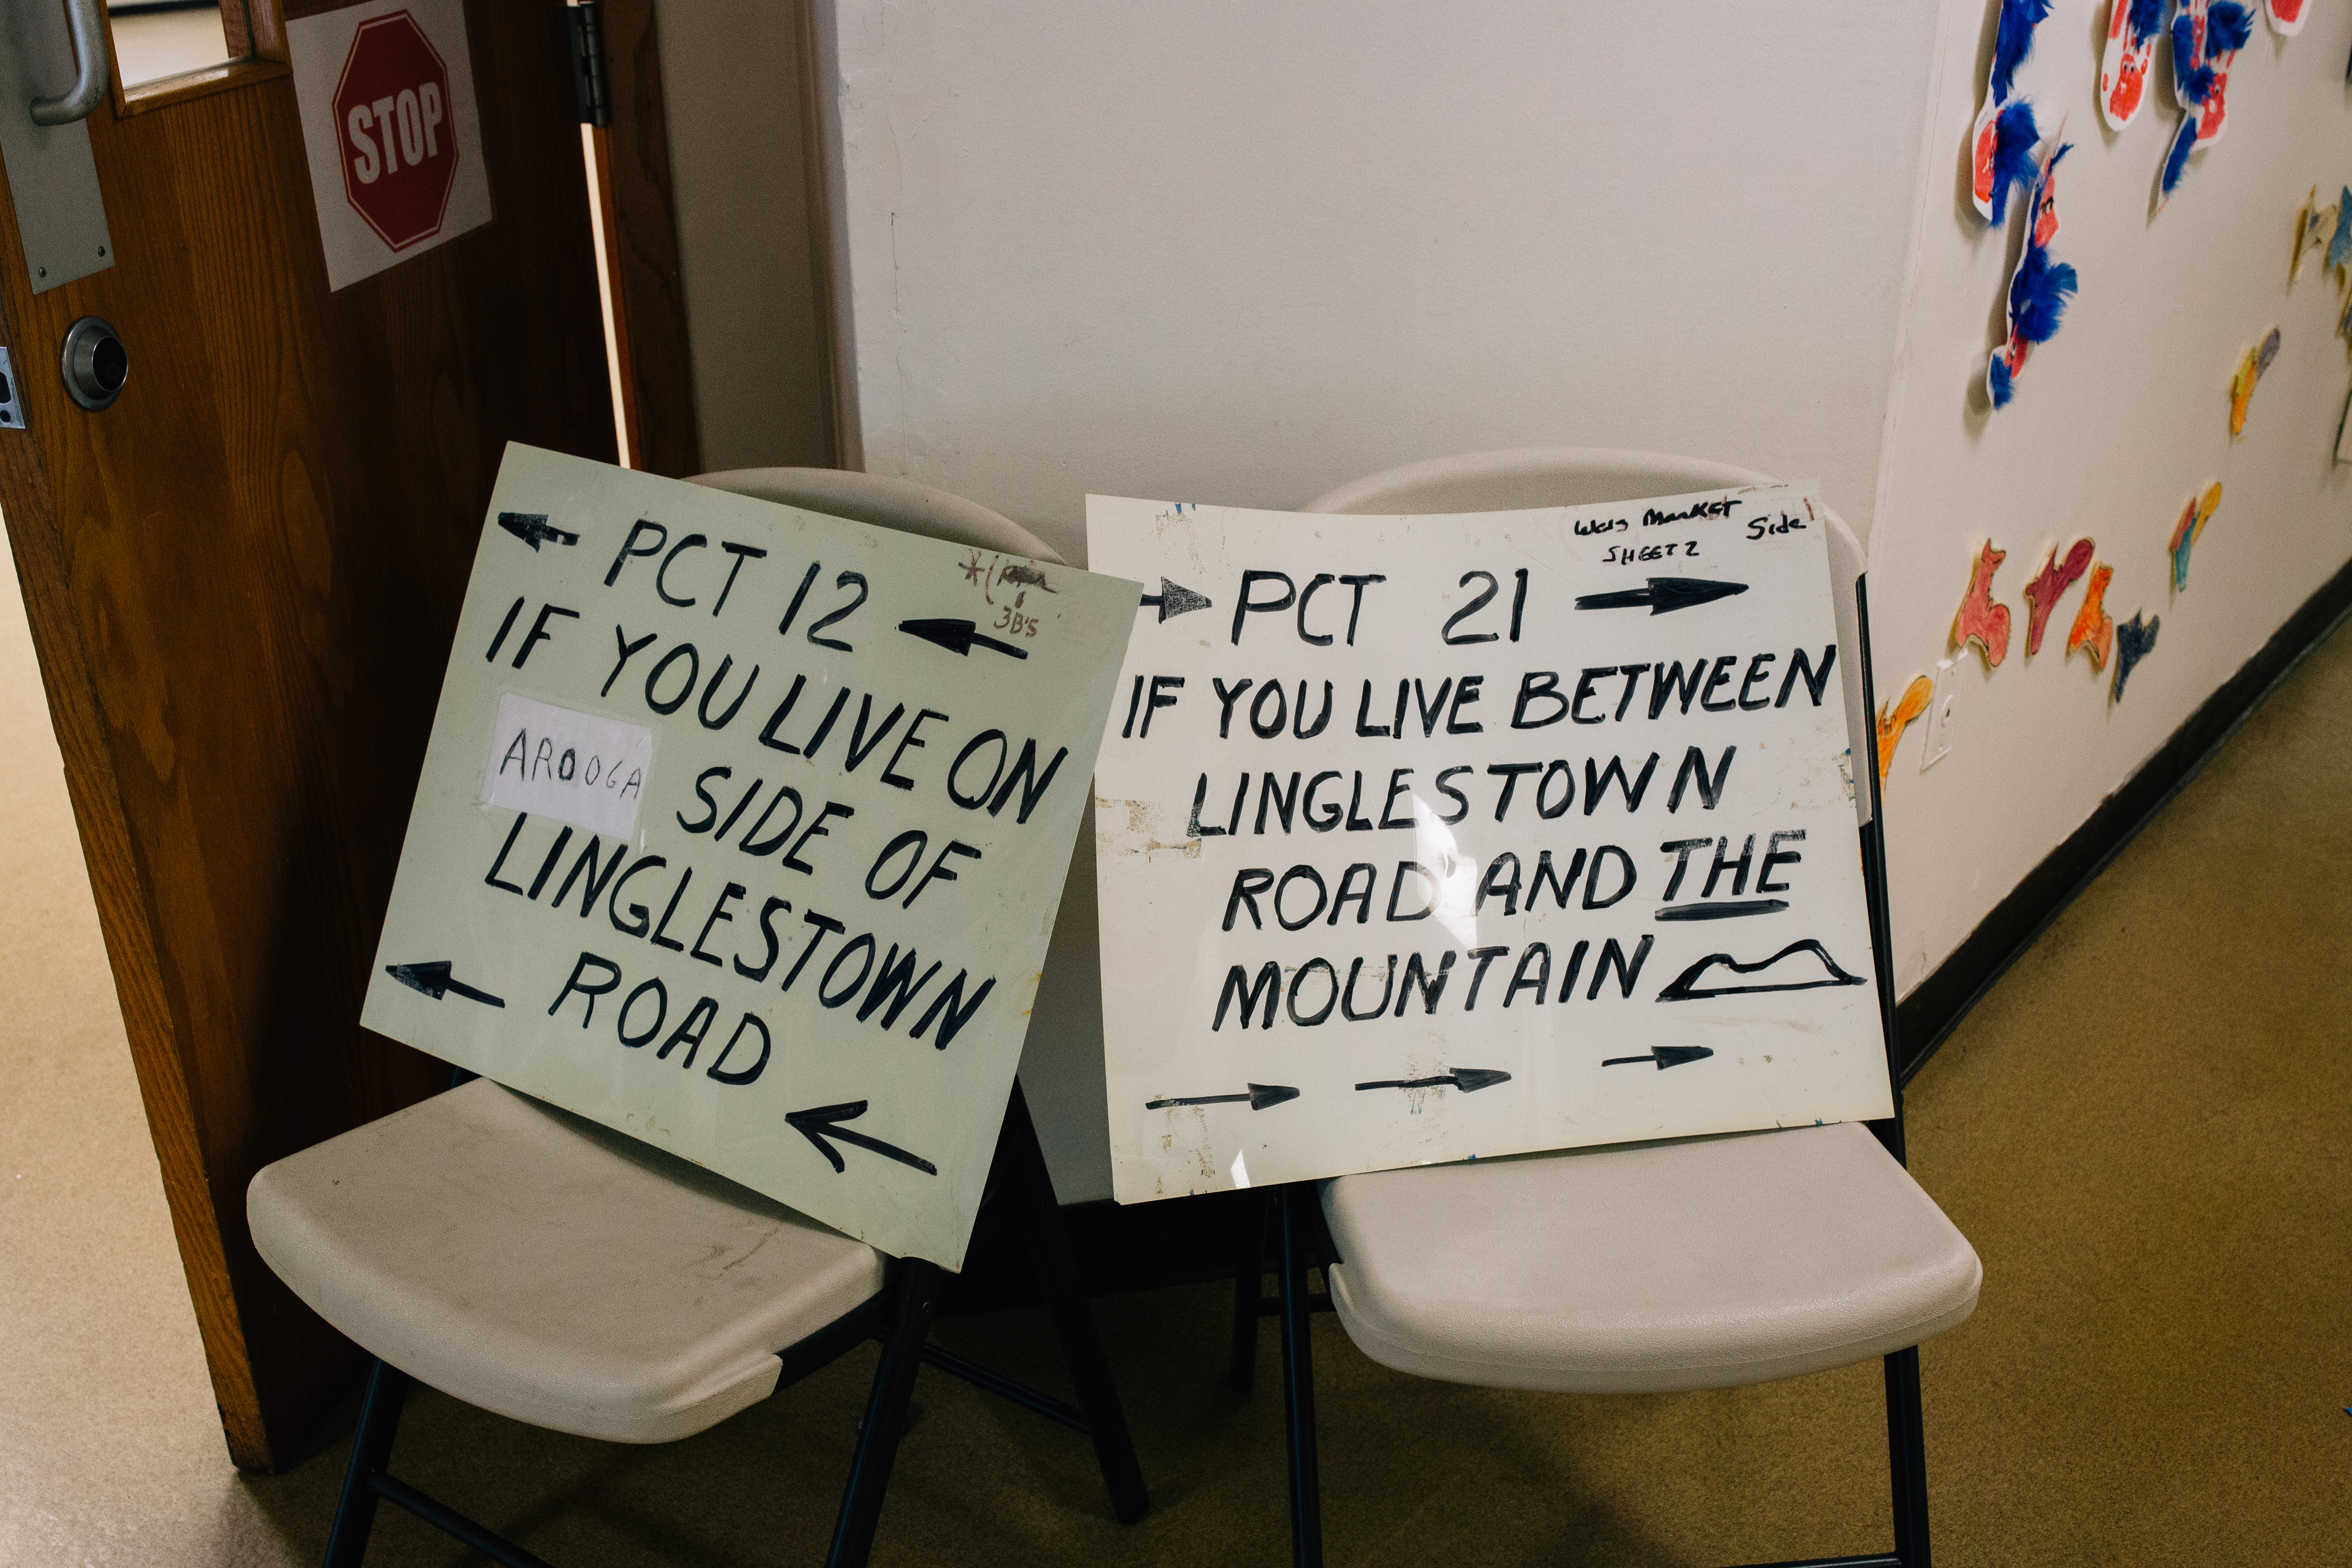 STOP
PCT 12
3B'S
IF YOU LIVE ON
AROOGA SIDE OF
LINGLESTOWN
ROAD
Market Side
SHEETZ
PCT 21
IF YOU LIVE BETWEEN
LINGLESTOWN
ROAD AND THE
MOUNTAIN